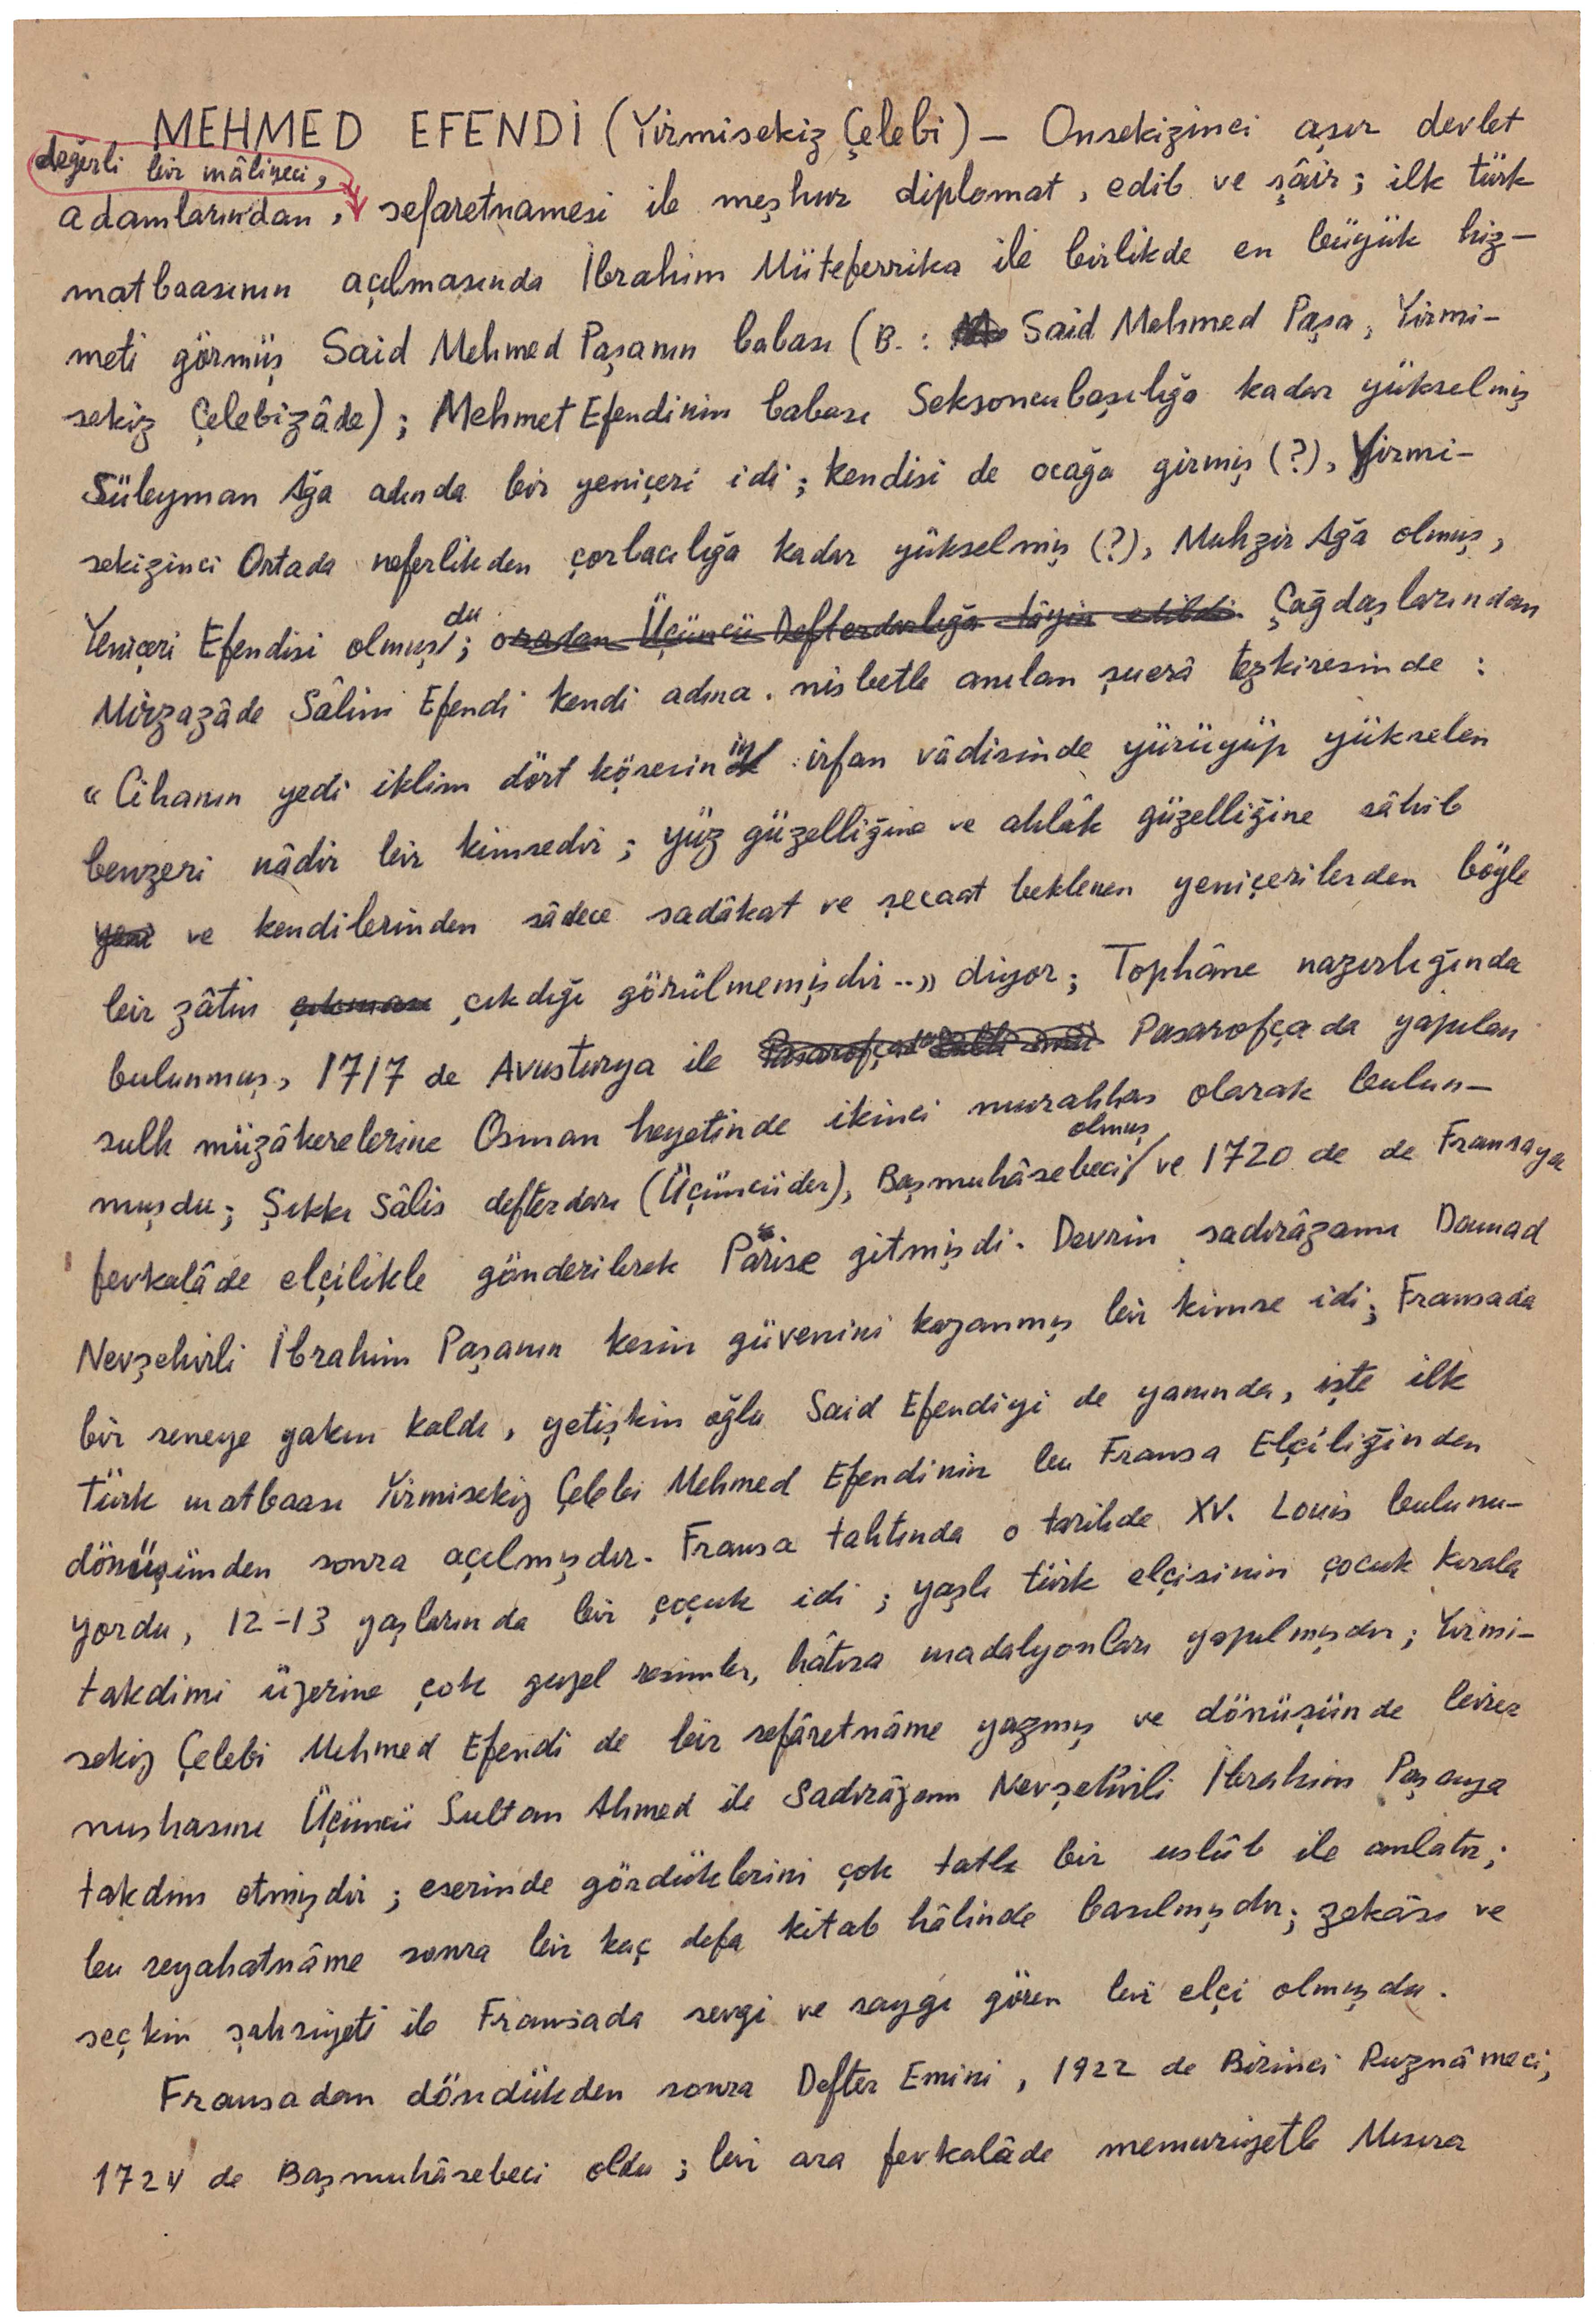 MEHMED EFENDİ (Yirmisekiz Çelebi) — Onsekizinci aşır devlet
değerli bir mâliyeci,
adamlarından, sefaretnamesi ile meşhur diplomat, edib ve şâir; ilk türk
matbaasının açılmasında İbrahim Müteferrika ile birlikde en büyük hiz-
meti görmüş Said Mehmed Paşanın babası (B.: Said Mehmed Paşa, Yirmi-
sekiz Çelebizâde); Mehmet Efendinin babası Seksoncubaşılığa kadar yükselmiş
Süleyman Ağa adında bir yeniçeri idi; kendisi de ocağa girmiş (?), Yirmi-
sekizinci Ortada neferlikden çorbacılığa kadar yükselmiş (?), Muhzir Ağa olmuş,
Yeniçeri Efendisi olmuşdu; oradan Üçüncü Defterdarlığa tâyin edildi Çağdaşlarından
Mirzazâde Sâlim Efendi kendi adına nisbetle anılan şuerâ tezkiresinde:
« Cihanın yedi iklim dört köşesinin irfan vâdisinde yürüyüp yükselen
benzeri nâdir bir kimsedir; yüz güzelliğine ve ahlâk güzelliğine sâhib
yeni ve kendilerinden sâdece sadâkat ve şecaat beklenen yeniçerilerden böyle
bir zâtın çıkması çıkdığı görülmemişdir..» diyor; Tophâne nazırlığında
bulunmuş, 1717 de Avusturya ile Pasarofçada Pasarofçada yapılan
sulh müzâkerelerine Osman heyetinde ikinci murahhas olarak bulun-
muşdu; Şıkkı Sâlis defterdarı (Üçüncüder), Başmuhâsebeci olmuş ve 1720 de de Fransaya
fevkalâde elçilikle gönderilerek Parise gitmişdi. Devrin sadırâzamı Damad
Nevşehirli İbrahim Paşanın kesin güvenini kazanmış bir kimse idi; Fransada
bir seneye yakın kaldı, yetişkin oğlu Said Efendiyi de yanında, işte ilk
Türk matbaası Yirmisekiz Çelebi Mehmed Efendinin bu Fransa Elçiliğinden
dönüşünden sonra açılmışdır. Fransa tahtında o tarihde XV. Louis bulunu-
yordu, 12-13 yaşlarında bir çoçuk idi; yaşlı türk elçisinin çocuk kırala
takdimi üzerine çok guzel resimler, hâtıra madalyonları yapılmışdır; Yirmi-
sekiz Çelebi Mehmed Efendi de bir sefâretnâme yazmış ve dönüşünde birer
nushasını Üçüncü Sultan Ahmed ile Sadırâzam Nevşehirli İbrahim Paşaya
takdim etmişdir; eserinde gördüklerini çok tatlı bir uslûb ile anlatır;
bu seyahatnâme sonra bir kaç defa kitab hâlinde basılmışdır; zekâsı ve
seçkin şahsiyeti ile Fransada sevgi ve saygı gören bir elçi olmuşdu.
Fransadan döndükden sonra Defter Emini, 1922 de Birinci Ruznâmeci,
1724 de Başmuhâsebeci oldu; bir ara fevkalâde memuriyetle Mısıra